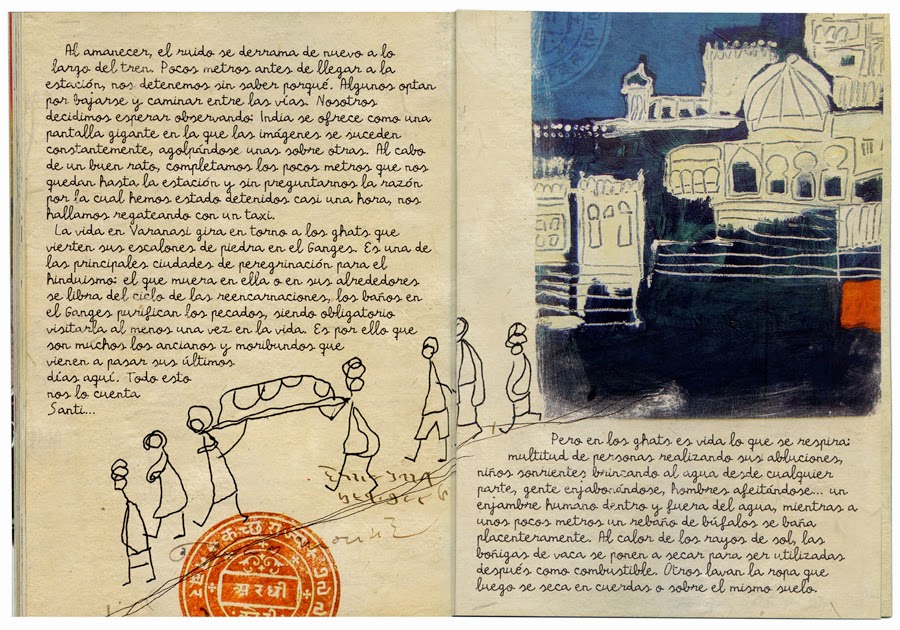 Al amanecer, el ruido se derrama de nuevo a lo
largo del tren. Pocos metros antes de llegar a la
estación, nos detenemos sin saber porqué. Algunos optan
por bajarse y caminar entre las vías. Nosotros
decidimos esperar observando: India se ofrece como una
pantalla gigante en la que las imágenes se suceden
constantemente, agolpándose unas sobre otras. Al cabo
de un buen rato, completamos los pocos metros que nos
quedan hasta la estación y sin preguntarnos la razón
por la cual hemos estado detenidos casi una hora, nos
hallamos regateando con un taxi.
La vida en Varanasi gira en torno a los ghats que
vierten sus escalones de piedra en el Ganges. Es una de
las principales ciudades de peregrinación para el
hinduismo: el que muera en ella o en sus alrededores
se libra del ciclo de las reencarnaciones, los baños en
el Ganges purifican los pecados, siendo obligatorio
visitarla al menos una vez en la vida. Es por ello que
son muchos los ancianos y moribundos que
vienen a pasar sus últimos
días aquí. Todo esto
nos lo cuenta
Santi...
Pero en los ghats es vida lo que se respira:
multitud de personas realizando sus abluciones,
niños sonrientes brincando al agua desde cualquier
parte, gente enjabonándose, hombres afeitándose... un
enjambre humano dentro y fuera del agua, mientras a
unos pocos metros un rebaño de búfalos se baña
placenteramente. Al calor de los rayos de sol, las
boñigas de vaca se ponen a secar para ser utilizadas
después como combustible. Otros lavan la ropa que
luego se seca en cuerdas o sobre el mismo suelo.